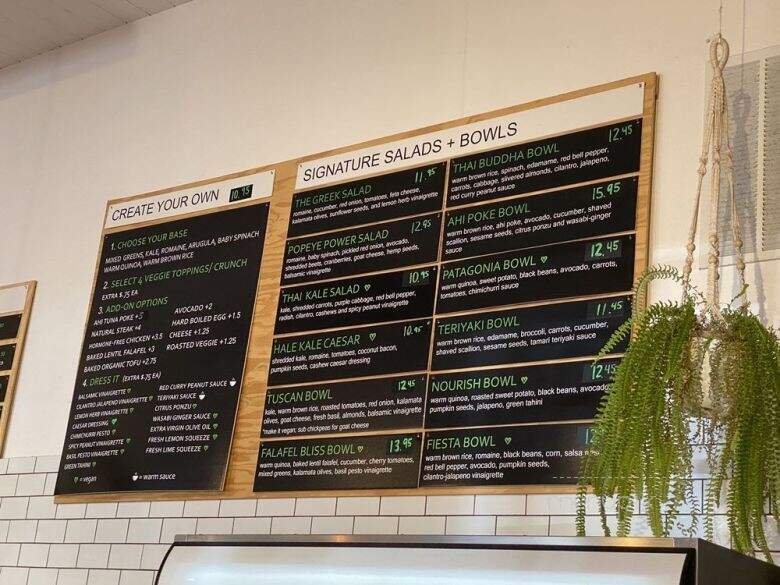 CREATE YOUR OWN 10.95
1. CHOOSE YOUR BASE
MIXED GREENS, KALE, ROMAINE, ARUGULA, BABY SPINACH
WARM QUINOA, WARM BROWN RICE
2. SELECT 4 VEGGIE TOPPINGS/ CRUNCH
EXTRA $.75 EA
3. ADD-ON OPTIONS
AHI TUNA POKE +5
NATURAL STEAK +4
HORMONE-FREE CHICKEN +3.5
BAKED LENTIL FALAFEL +3
BAKED ORGANIC TOFU +2.75
AVOCADO +2
HARD BOILED EGG +1.5
CHEESE +1.25
ROASTED VEGGIE +1.25
4. DRESS IT (EXTRA $.75 EA)
BALSAMIC VINAIGRETTE
CILANTRO JALAPENO VINAIGRETTE
LEMON HERB VINAIGRETTE
CAESAR DRESSING
CHIMICHURRI PESTO
SPICY PEANUT VINAIGRETTE
BASIL PESTO VINAIGRETTE
GREEN TAHINI
RED CURRY PEANUT SAUCE
TERIYAKI SAUCE
CITRUS PONZU
WASABI GINGER SAUCE
EXTRA VIRGIN OLIVE OIL
FRESH LEMON SQUEEZE
FRESH LIME SQUEEZE
= vegan
= warm sauce
SIGNATURE SALADS + BOWLS
THE GREEK SALAD 11.95
romaine, cucumber, red onion, tomatoes, feta cheese,
kalamata olives, sunflower seeds, and lemon herb vinaigrette
POPEYE POWER SALAD 12.95
romaine, baby spinach, pickled red onion, avocado,
shredded beets, cranberries, goat cheese, hemp seeds,
balsamic vinaigrette
THAI KALE SALAD 10.95
kale, shredded carrots, purple cabbage, red bell pepper,
radish, cilantro, cashews and spicy peanut vinaigrette
HALE KALE CAESAR 10.95
shredded kale, romaine, tomatoes, coconut bacon,
pumpkin seeds, cashew caesar dressing
TUSCAN BOWL 12.45
kale, warm brown rice, roasted tomatoes, red onion, kalamata
olives, goat cheese, fresh basil, almonds, balsamic vinaigrette
*make it vegan: sub chickpeas for goat cheese
FALAFEL BLISS BOWL 13.95
warm quinoa, baked lentil falafel, cucumber, cherry tomatoes,
mixed greens, kalamata olives, basil pesto vinaigrette
THAI BUDDHA BOWL 12.45
warm brown rice, spinach, edamame, red bell pepper,
carrots, cabbage, slivered almonds, cilantro, jalapeno,
red curry peanut sauce
AHI POKE BOWL 15.95
warm brown rice, ahi poke, avocado, cucumber, shaved
scallion, sesame seeds, citrus ponzu and wasabi-ginger
PATAGONIA BOWL 12.45
warm quinoa, sweet potato, black beans, avocado, carrots,
tomatoes, chimichurri sauce
TERIYAKI BOWL 11.45
warm brown rice, edamame, broccoli, carrots, cucumber,
shaved scallion, sesame seeds, tamari teriyaki sauce
NOURISH BOWL 12.45
warm quinoa, roasted sweet potato, black beans, avocado
pumpkin seeds, jalapeno, green tahini
FIESTA BOWL 12
warm brown rice, romaine, black beans, corn, salsa
red bell pepper, avocado, pumpkin seeds,
cilantro-jalapeno vinaigrette